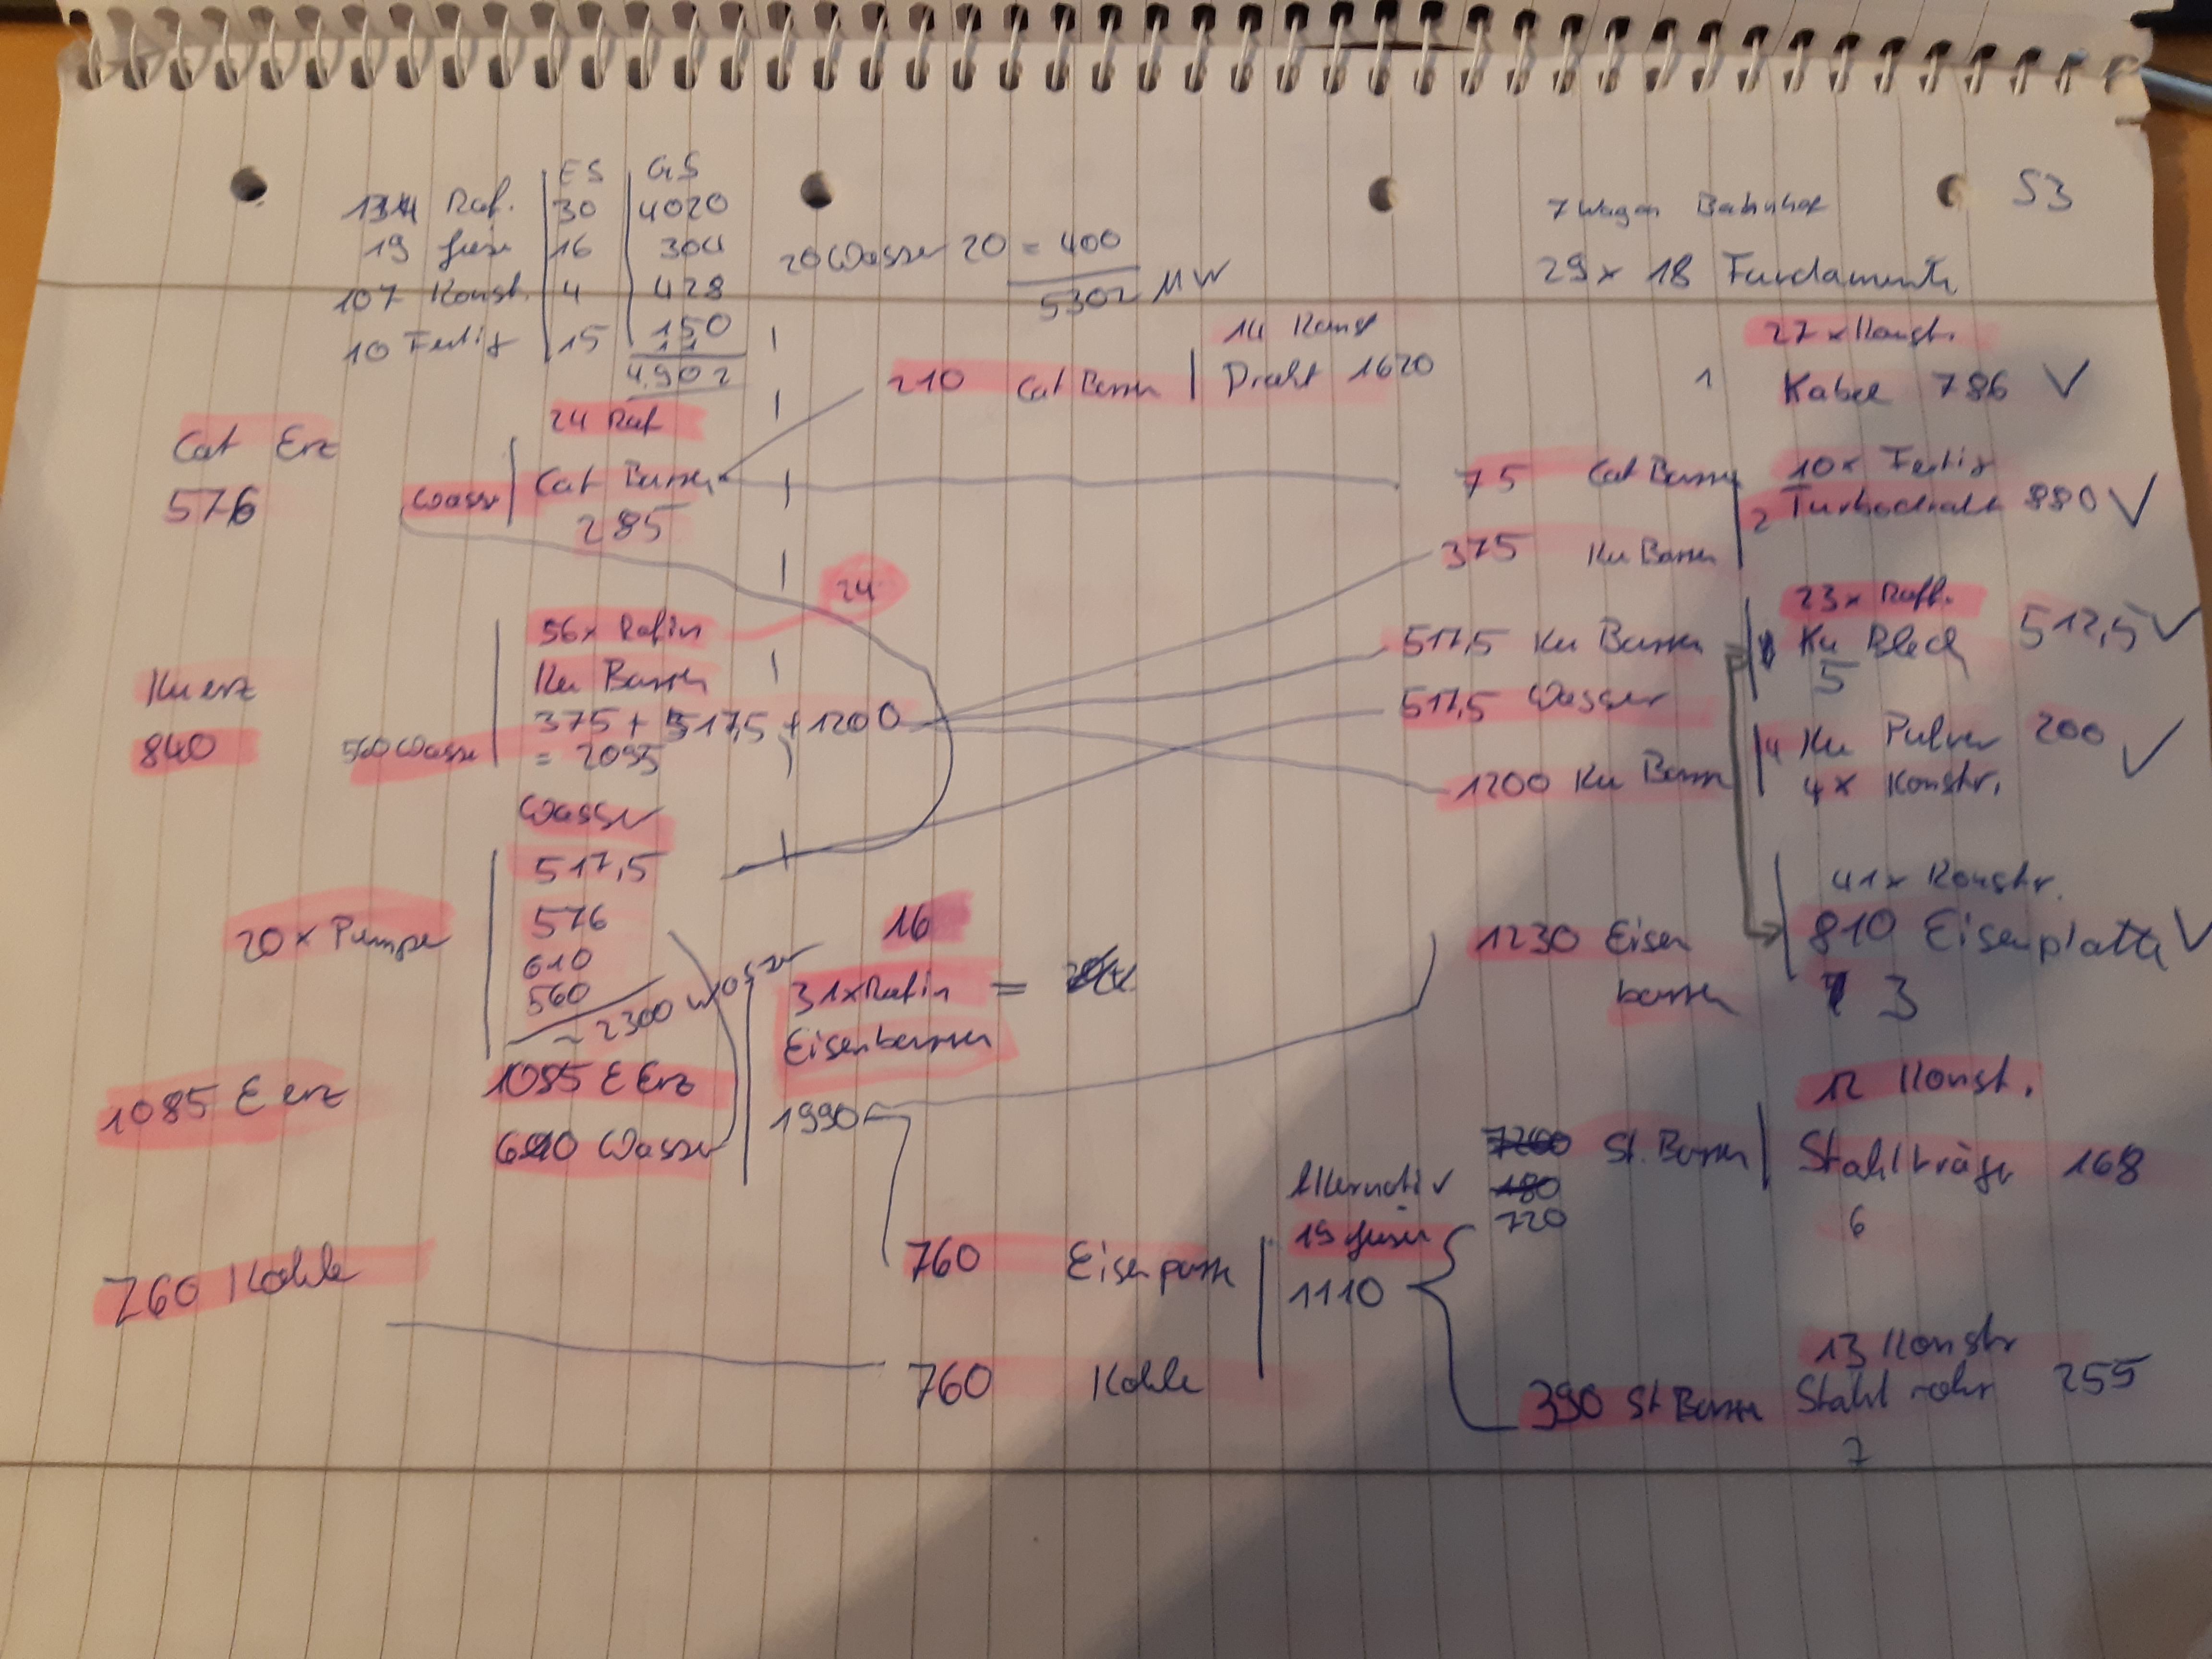 S3
ES GS
134 Raf. 30 4020
19 16 304
107 Konst. 4 428
10 Fertig 15 150
4902
20 Wasser 20 = 400
5302 MW
7 Wagen Bahnhof
29 x 18 Fundamente
14 Konst
210 Cat Barren Draht 1620
27 x Konstr.
1 Kabel 786 ✓
24 Raf
Cat Erz
576
Wasser Cat Barren
285
75 Cat Barren
375 Ku Barren
10x Fertig
2 Turbodraht 880 ✓
24
56x Rafin
Ku Barren
375 + 517,5 + 1200
= 2095
Ku erz
840
560 Wasser
517,5 Ku Barren
517,5 Wasser
1200 Ku Barren
23x Raff.
Ku Blech 512,5 ✓
5
4 Ku Pulver 200 ✓
4x Konstr.
Wasser
20 x Pumpe
517,5
576
610
560
~ 2300 Wasser
16
31x Rafin =
Eisenbarren
1990
1230 Eisen
barren
41x Konstr.
810 Eisenplatte ✓
3
1085 E erz
1085 E Erz
610 Wasser
12 Konst.
720 St. Barren Stahlträger 168
6
Alternativ
1110
760 Kohle
760 Eisen
760 Kohle
13 Konstr
390 St Barren Stahl rohr 255
7